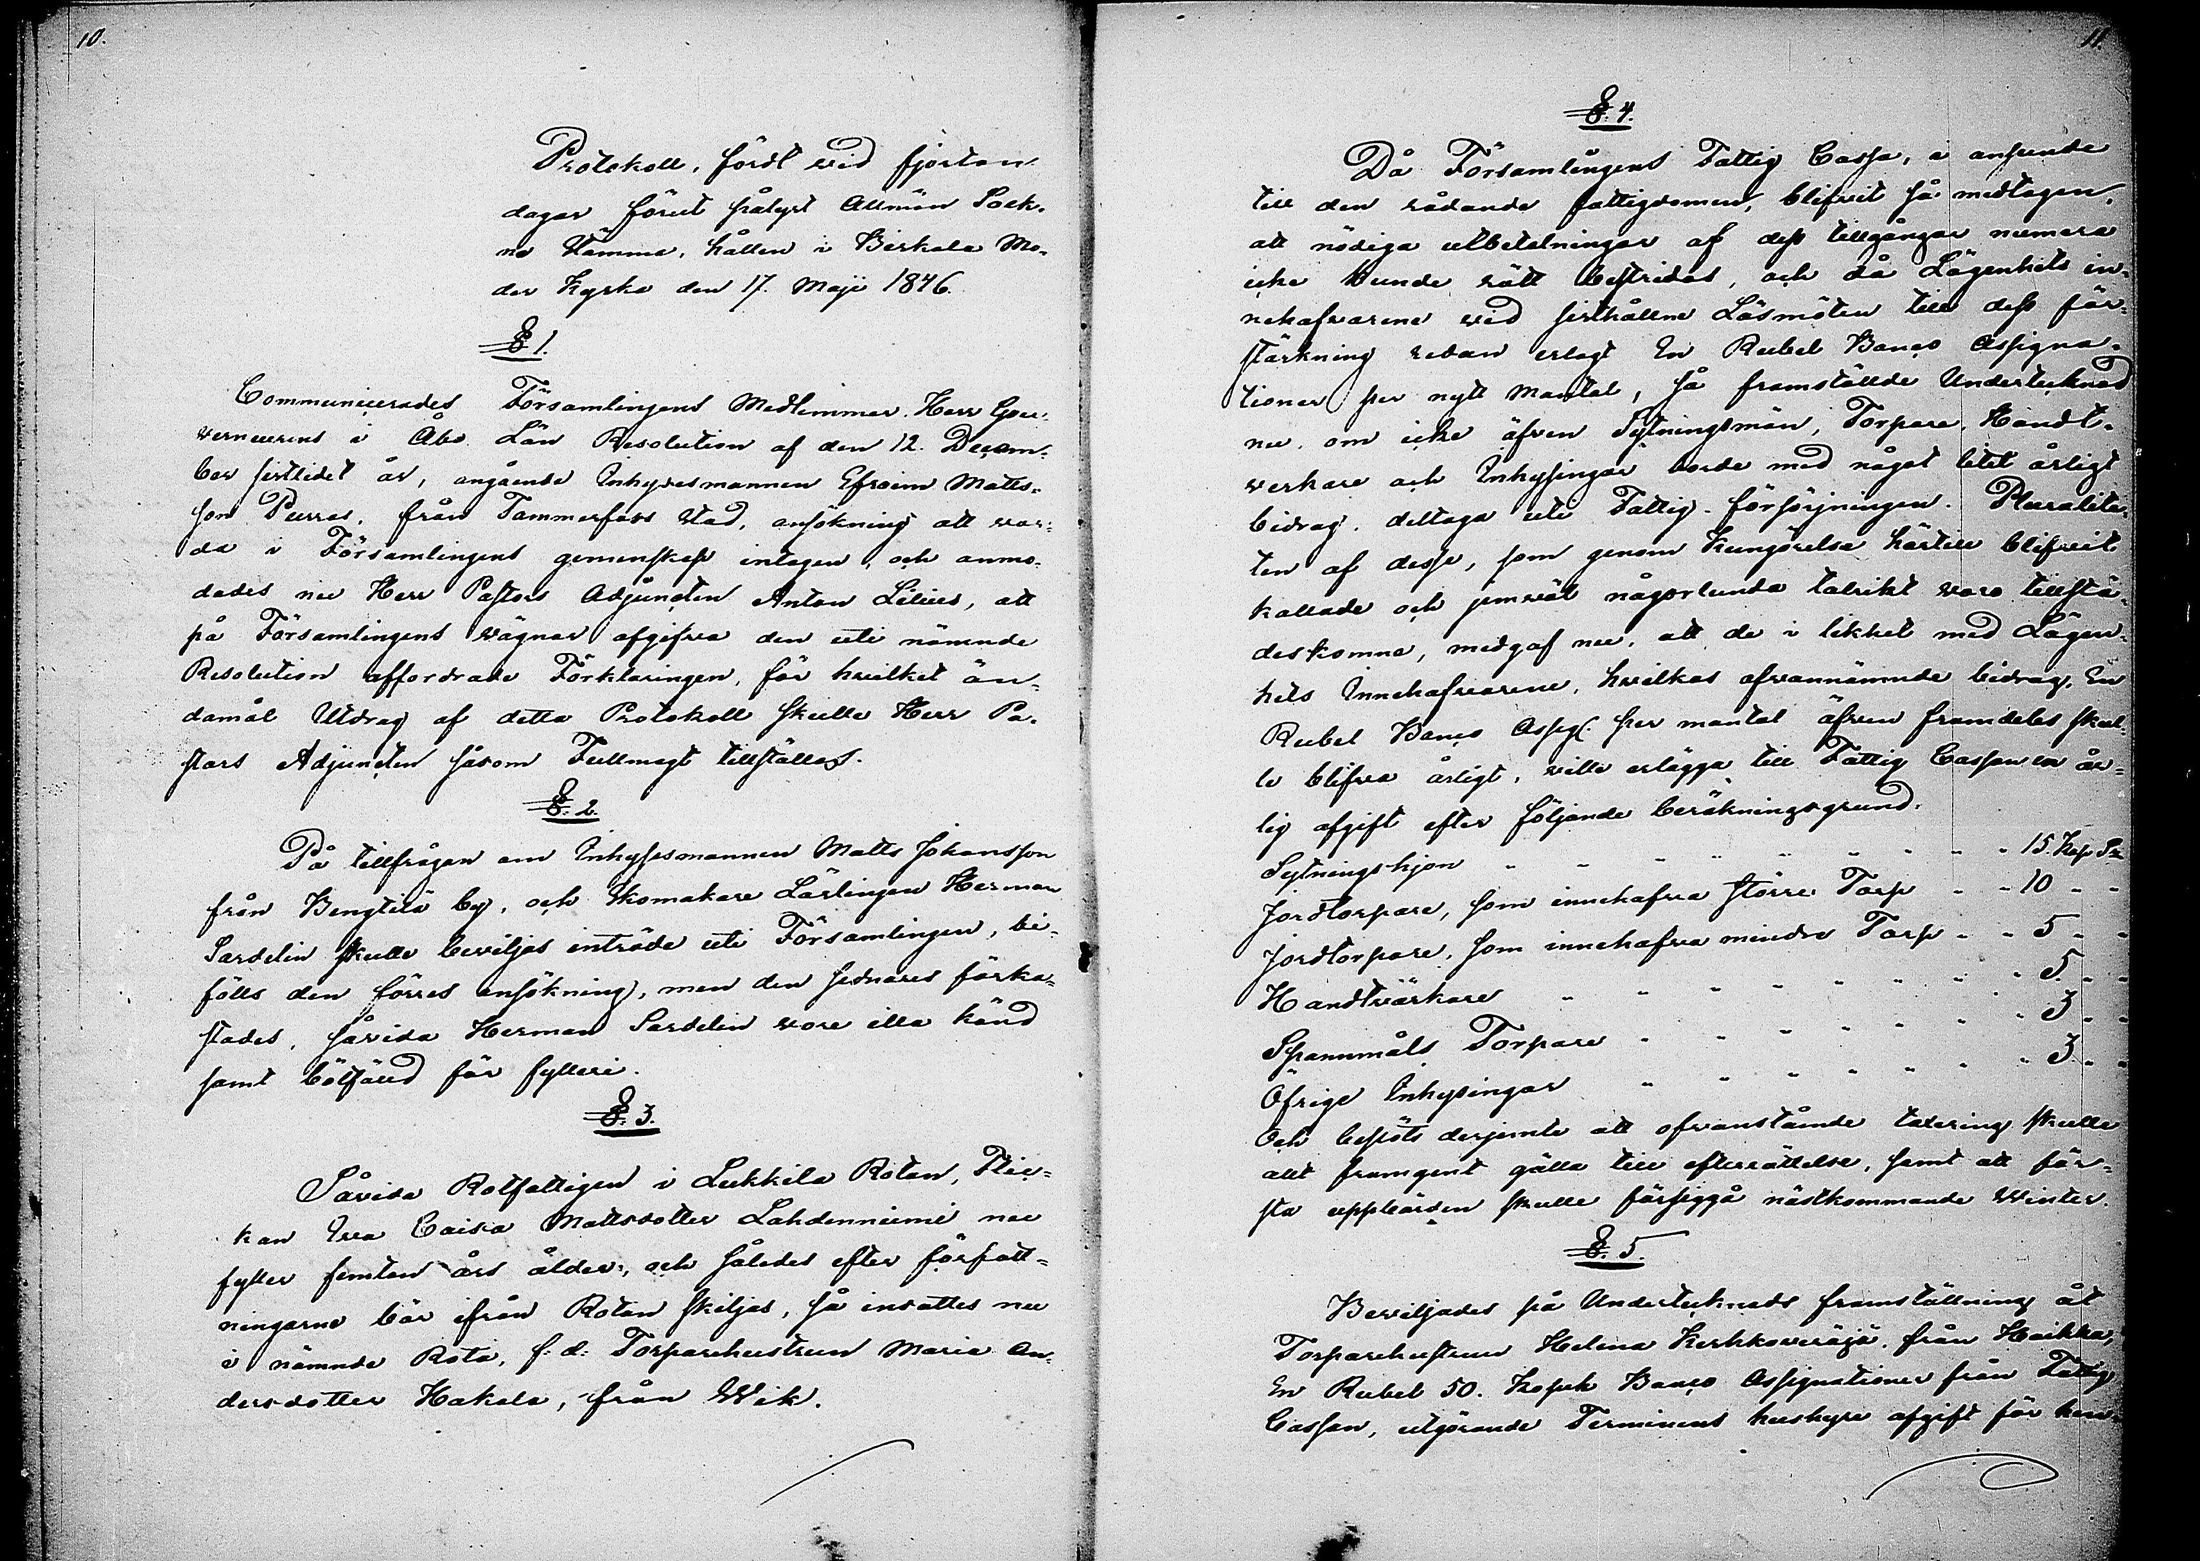 10.
Protokoll, fördt wid fjorton
dagar förut pålyst Allmän Sock-
ne Stämma, hållen i Birkala Mo-
der Kyrka den 17. Maji 1846.
§ 1.
Communicerades Församlingens Medlemmar Herr Gou-
verneurens i Åbo Län Resolution af den 12. Decem-
ber sistlidet år, angående Inhysesmannen Efraim Matts-
son Purras, från Tammerfors Stad, ansökning att var-
da i Församlingens gemenskap intagen, och anmo-
dades nu Herr Pastors Adjuncten Anton Lilius, att
på Församlingens vägnar afgifva den uti nämnde
Resolution affordrade Förklaringen, för hvilket än-
damål Utdrag af detta Protokoll skulle Herr Pa-
stors Adjuncten såsom Fullmagt tillställas.
§. 2.
På tillfrågan om Inhysesmannen Matts Johansson
från Bengtilä by, och Skomakare Lärlingen Herman
Sardelin skulle beviljas inträde uti Församlingen, bi-
fölls den förres ansökning, men den sednares förka-
stades, såvida Herman Sardelin vore illa känd
samt bötfälld för fylleri.
§. 3.
Såvida Rotfattigen i Lukkila Rotan, Flic-
kan Eva Caisa Mattsdotter Lahdenniemi nu
fyller femton års ålder, och således efter författ-
ningarne bör ifrån Rotan skiljas, så insattes nu
i nämnde Rota, f. d. Torparehustrun Maria An-
dersdotter Hakala, från Wik.
11.
§. 4.
Då Församlingens Fattig Cassa, i anseende
till den rådande fattigdomen, blifvit så medtagen,
att nödiga utbetalningar af dess tillgångar numera
icke kunde rätt bestridas, och då Lägenhets in-
nehafvarene vid sisthållne Läsmöten till dess för-
stärkning redan erlagt En Rubel Banco Assigna-
tioner per nytt Mantal, så framställde Undertecknad
nu, om icke äfven Sytningsmän, Torpare, Handt-
verkare och Inhysingar borde med något litet årligt
bidrag, deltaga uti Fattig-försörjningen. Pluralite-
ten af desse, som genom Kungörelse härtill blifvit
kallade och jemväl någorlunda talrikt voro tillstä-
deskomne, medgaf nu, att de i likhet med Lägen-
hets Innehafvarene, hvilkas ofvannämnde bidrag, En
Rubel Banco Assig. per mantal äfven framdeles skul-
le blifva årligt, ville erlägga till Fattig Cassan en år-
lig afgift efter följande beräkningsgrund:
Sytningshjon - - - - - - - - - 15. Kop Sr
Jordtorpare, som innehafva större Torp - - 10 - -
Jordtorpare, som innehafva mindre Torp - - 5 - -
Handtvärkare - - - - - - - - - 5. - -
Spannmåls Torpare - - - - - - - - 3 - -
Öfrige Inhysingar - - - - - - - - 3. - -
Och beslöts derjemte att ofvanstående taxering skulle
allt framgent gälla till efterrättelse, samt att för-
sta uppbörden skulle försiggå nästkommande Winter.
§. 5.
Beviljades på Undertecknads framställning åt
Torparehustrun Helena Kerkkoveräjä, från Haikka,
En Rubel 50. Kopek Banco Assignationer från Fattig
Cassan, utgörande Terminens hushyre afgift för hen-